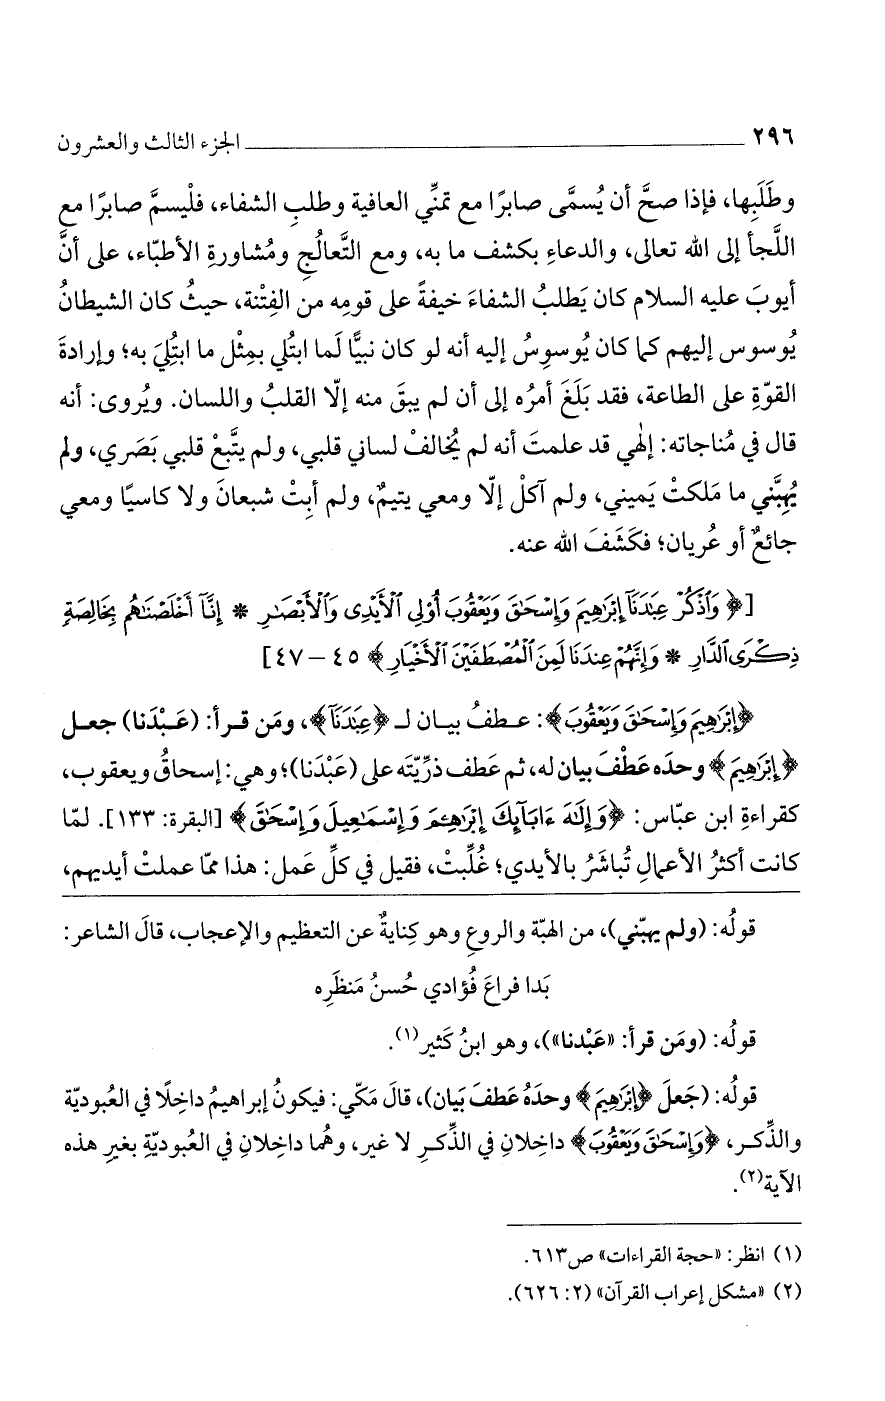 ٢٩٦ ــــــــــــــــــــــــــــــــــــــــــــــ الجزء الثالث والعشرون
وطَلَبِها، فإذا صحَّ أن يُسمَّى صابرًا مع تمنِّي العافية وطلبِ الشفاء، فلْيسمَّ صابرًا مع
اللَّجأ إلى الله تعالى، والدعاءِ بكشف ما به، ومع التَّعالُجِ ومُشاورةِ الأطبّاء، على أنَّ
أيوبَ عليه السلام كان يَطلبُ الشفاءَ خيفةً على قومِه من الفِتْنة، حيثُ كان الشيطانُ
يُوسوس إليهم كما كان يُوسوِسُ إليه أنه لو كان نبيًّا لَما ابتُلي بمِثْل ما ابتُلِيَ به؛ وإرادةَ
القوّةِ على الطاعة، فقد بَلَغَ أمرُه إلى أن لم يبقَ منه إلّا القلبُ واللسان. ويُروى: أنه
قال في مُناجاته: إلٰهي قد علمتَ أنه لم يُخالفْ لساني قلبي، ولم يتَّبعْ قلبي بَصَري، ولم
يُهِبَّني ما مَلكتْ يَميني، ولم آكلْ إلّا ومعي يتيمٌ، ولم أبِتْ شبعانَ ولا كاسيًا ومعي
جائعٌ أو عُريان؛ فكَشَفَ الله عنه.
[﴿ وَٱذْكُرْ عِبَٰدَنَآ إِبْرَٰهِيمَ وَإِسْحَٰقَ وَيَعْقُوبَ أُوْلِى ٱلْأَيْدِى وَٱلْأَبْصَٰرِ * إِنَّآ أَخْلَصْنَٰهُم بِخَالِصَةٍ
ذِكْرَى ٱلدَّارِ * وَإِنَّهُمْ عِندَنَا لَمِنَ ٱلْمُصْطَفَيْنَ ٱلْأَخْيَارِ ﴾ ٤٥ – ٤٧]
﴿إِبْرَٰهِيمَ وَإِسْحَٰقَ وَيَعْقُوبَ﴾: عـطفُ بيـان لـ ﴿عِبَٰدَنَآ﴾، ومَن قـرأ: (عَـبْدَنا) جعـل
﴿ إِبْرَٰهِيمَ ﴾ وحدَه عَطْفَ بيان له، ثم عَطف ذرِّيّتَه على (عَبْدَنا)؛ وهي: إسحاقُ ويعقوب،
كقراءةِ ابن عبّاس: ﴿وَإِلَٰهَ ءَابَآئِكَ إِبْرَٰهِـۧمَ وَإِسْمَٰعِيلَ وَإِسْحَٰقَ ﴾ [البقرة: ١٣٣]. لمّا
كانت أكثرُ الأعمالِ تُباشَرُ بالأيدي؛ غُلِّبتْ، فقيل في كلِّ عَمل: هذا ممّا عملتْ أيديهم،
قولُه: (ولم يهبّني)، من الهبّة والروعِ وهو كِنايةٌ عن التعظيم والإعجاب، قالَ الشاعر:
بَدا فراعَ فُؤادي حُسنُ مَنظَرِه
قولُه: (ومَن قرأ: «عَبْدنا»)، وهو ابنُ كَثير(١).
قولُه: (جَعلَ ﴿إِبْرَٰهِيمَ ﴾ وحدَهُ عَطفَ بَيان)، قالَ مَكّي: فيكونُ إبراهيمُ داخِلًا في العُبوديّة
والذِّكـر، ﴿وَإِسْحَٰقَ وَيَعْقُوبَ﴾ داخِلانِ في الذِّكـرِ لا غير، وهُما داخِلان في العُبوديّةِ بغيرِ هذه
الآية(٢).
(١) انظر: «حجة القراءات» ص٦١٣.
(٢) «مشكل إعراب القرآن» (٢: ٦٢٦).